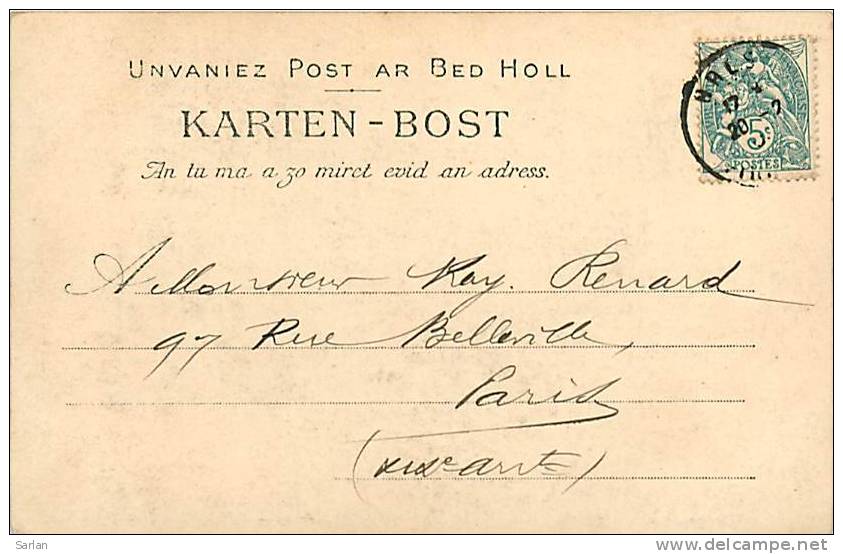 UNVANIEZ POST AR BED HOLL
KARTEN-BOST
An tu ma a zo miret evid an adress.
5c
POSTES
A Monsieur Ray. Renard
97 Rue Belleville,
Paris
(XIXe arrt)
Sarlan
delcampe.net